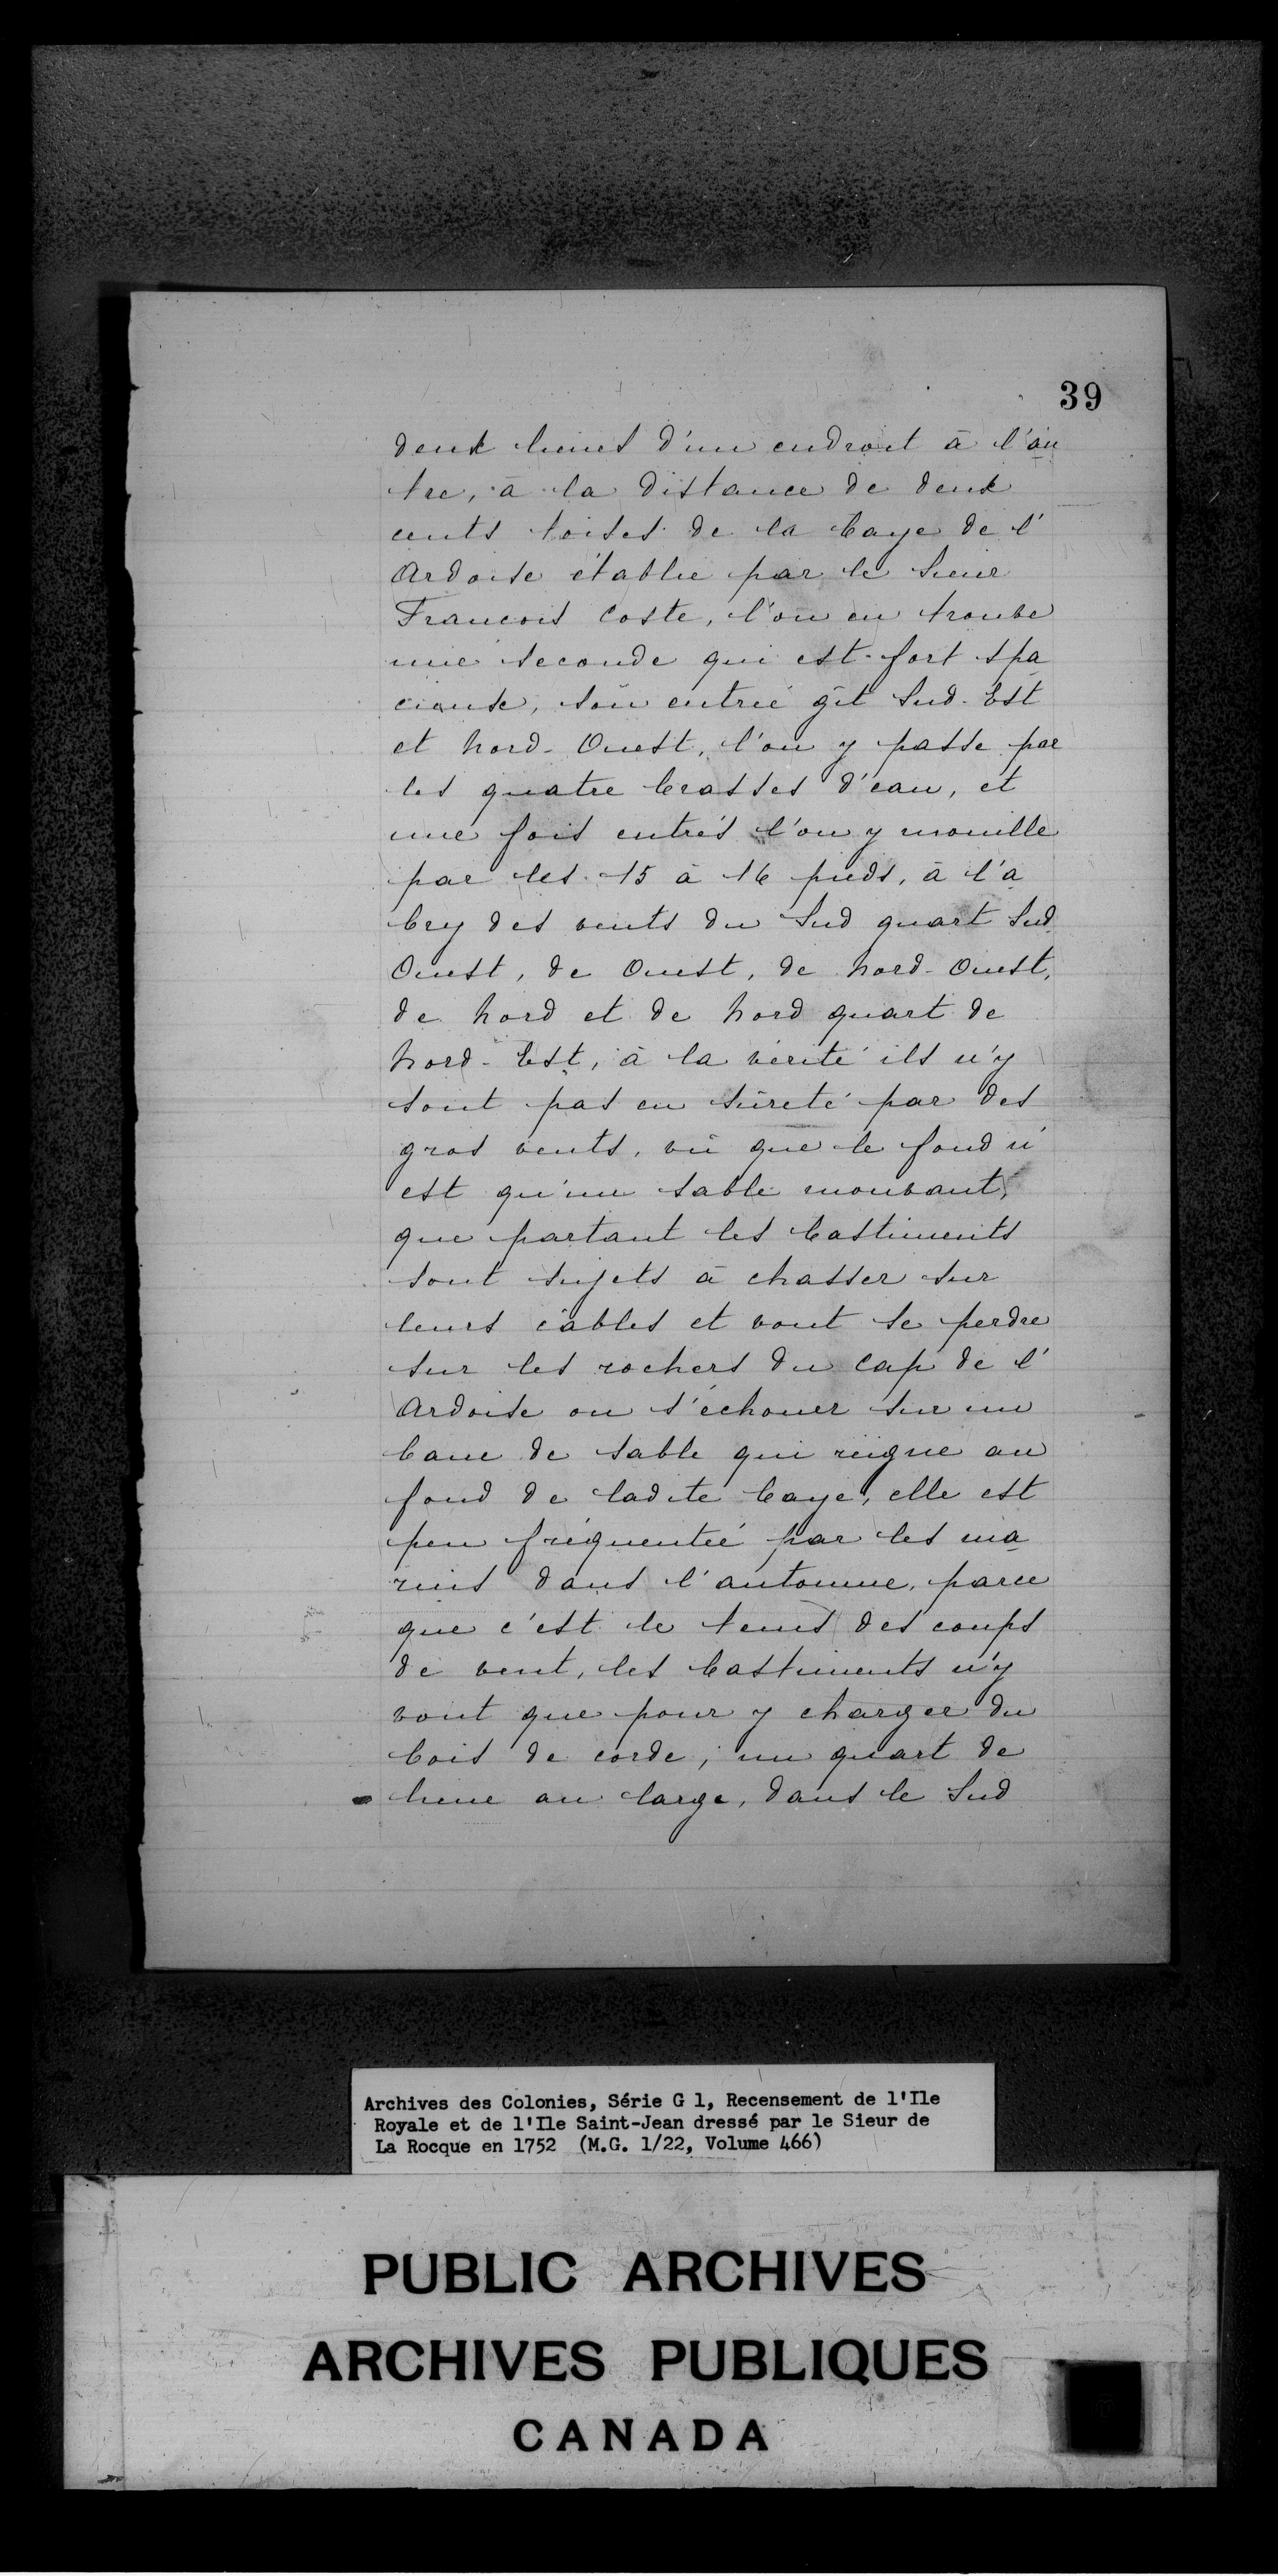 39
deux lieues d'un endroit à l'au
tre, à la distance de deux
cents toises de la baye de l'
Ardoise établie par le Sieur
Francois Coste, l'on en trouve
une seconde qui est fort spa
cieuse, son entrée gît Sud-Est
et Nord-Ouest, l'on y passe par
les quatre brasses d'eau, et
une fois entrés l'on y mouille
par les 15 à 16 pieds, à l'a
bry des vents du Sud quart Sud
Ouest, de Ouest, de Nord-Ouest,
de Nord et de Nord quart de
Nord-Est, à la vérité ils n'y
sont pas en sûreté par des
gros vents, vû que le fond n'
est qu'un sable mouvant,
que partant les bastiments
sont sujets à chasser sur
leurs câbles et vont se perdre
sur les rochers du Cap de l'
Ardoise ou s'échouer sur un
banc de sable qui règne au
fond de ladite baye, elle est
peu fréquentée par les ma
rins dans l'automne, parce
que c'est le tems des coups
de vent, les bastiments n'y
vont que pour y charger du
bois de corde; un quart de
lieue au large, dans le Sud
Archives des Colonies, Série G 1, Recensement de l'Ile
Royale et de l'Ile Saint-Jean dressé par le Sieur de
La Rocque en 1752 (M.G. 1/22, Volume 466)
PUBLIC ARCHIVES
ARCHIVES PUBLIQUES
CANADA